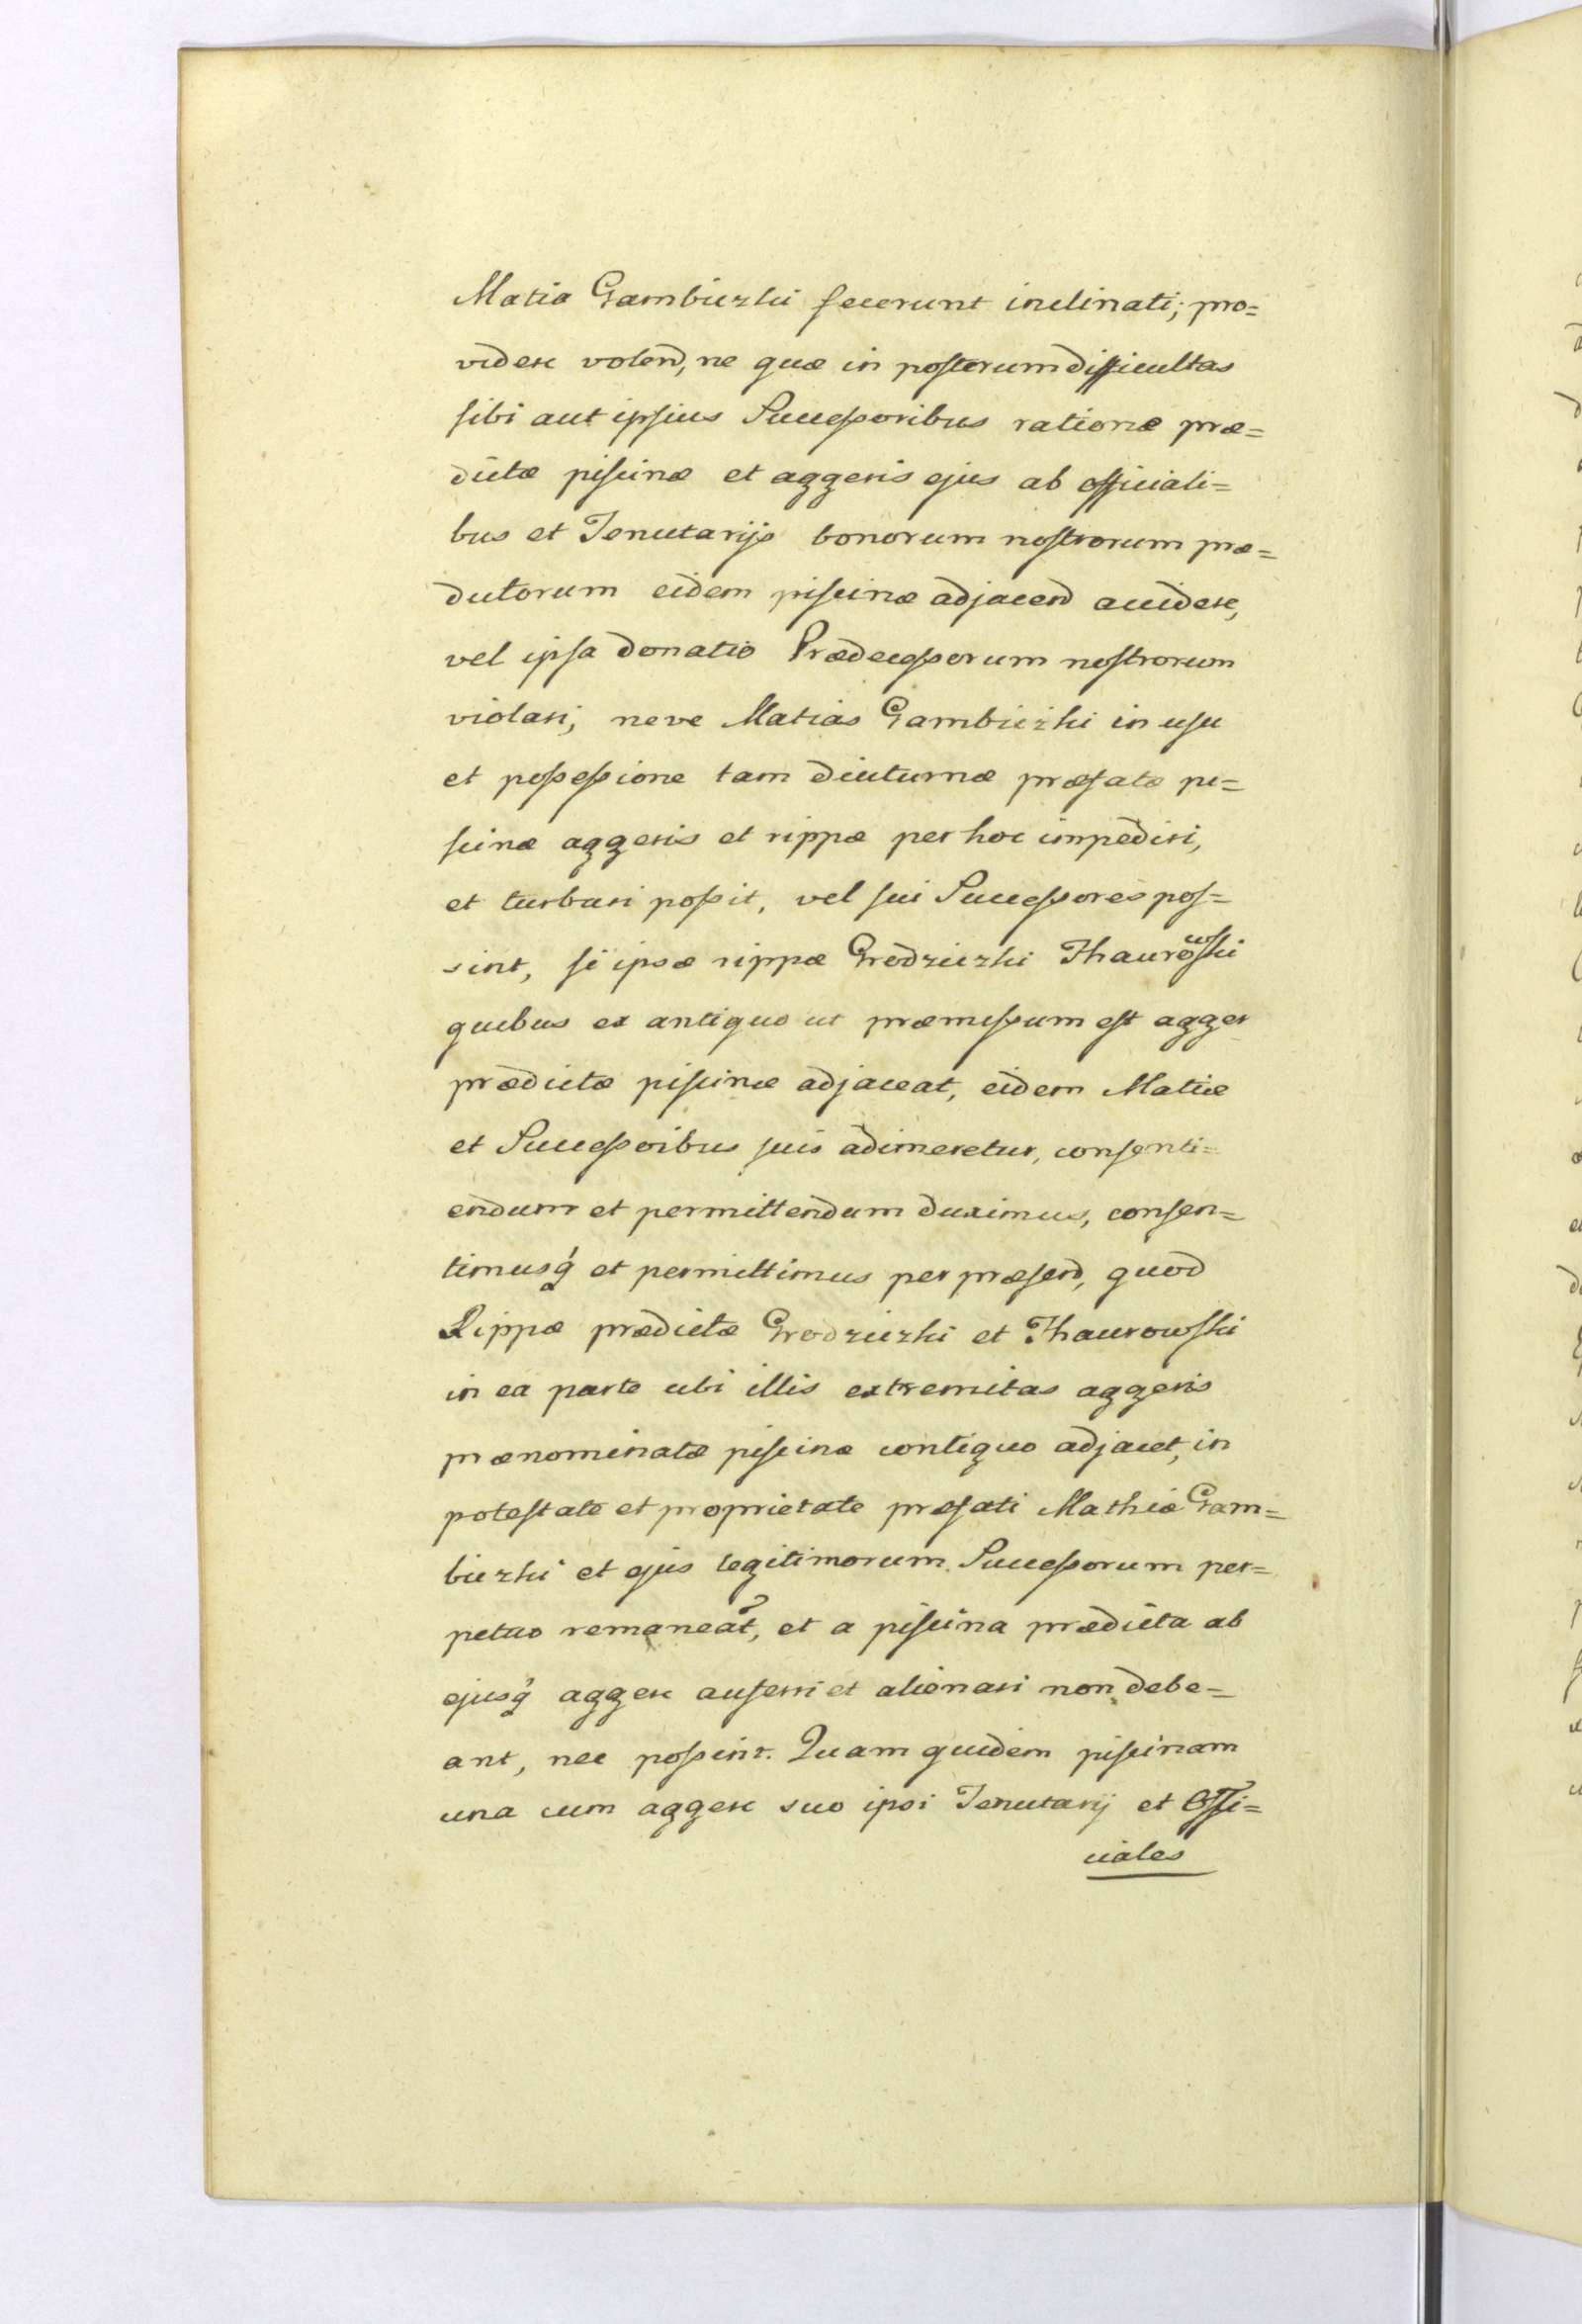 Matia Gambiczki fecerunt inclinati; pro=
videre volend, ne quæ in posterum difficultas
sibi aut ipsius Successoribus rationæ præ=
dictæ piscinæ et aggeris ejus ab officiali=
bus et Tenutarijs bonorum nostrorum præ=
dictorum eidem piscinæ adjacend accidere,
vel ipsa donatio Prædecessorum nostrorum
violari; neve Matias Gambiczki in usu
et possessione tam diuturnæ præfatæ pi=
scinæ aggeris et rippæ per hoc impediri,
et turbari possit, vel sui Successores pos=
sint, si ipsæ rippæ Grodziczki Thaurowski
quibus ex antiquo ut præmissum est agger
prædictæ piscinæ adjaceat, eidem Matiæ
et Successoibus suis adimeretur, consenti=
endum et permittendum duximus, consen=
timusq́ et permittimus per præsend, quod
Rippæ prædictæ Grodziczki et Thaurowski
in ea parte ubi illis extremitas aggeris
prænominatæ piscinæ contiguo adjacet, in
potestate et proprietate præfati Mathiæ Gam=
biczki et ejus legitimorum Successorum per=
petuo remaneat, et a piscina prædicta ab
ejusq́ aggere auferri et alienari non debe=
ant, nec possint. Quam quidem piscinam
una cum aggere suo ipsi Tenutarij et Offi=
ciales